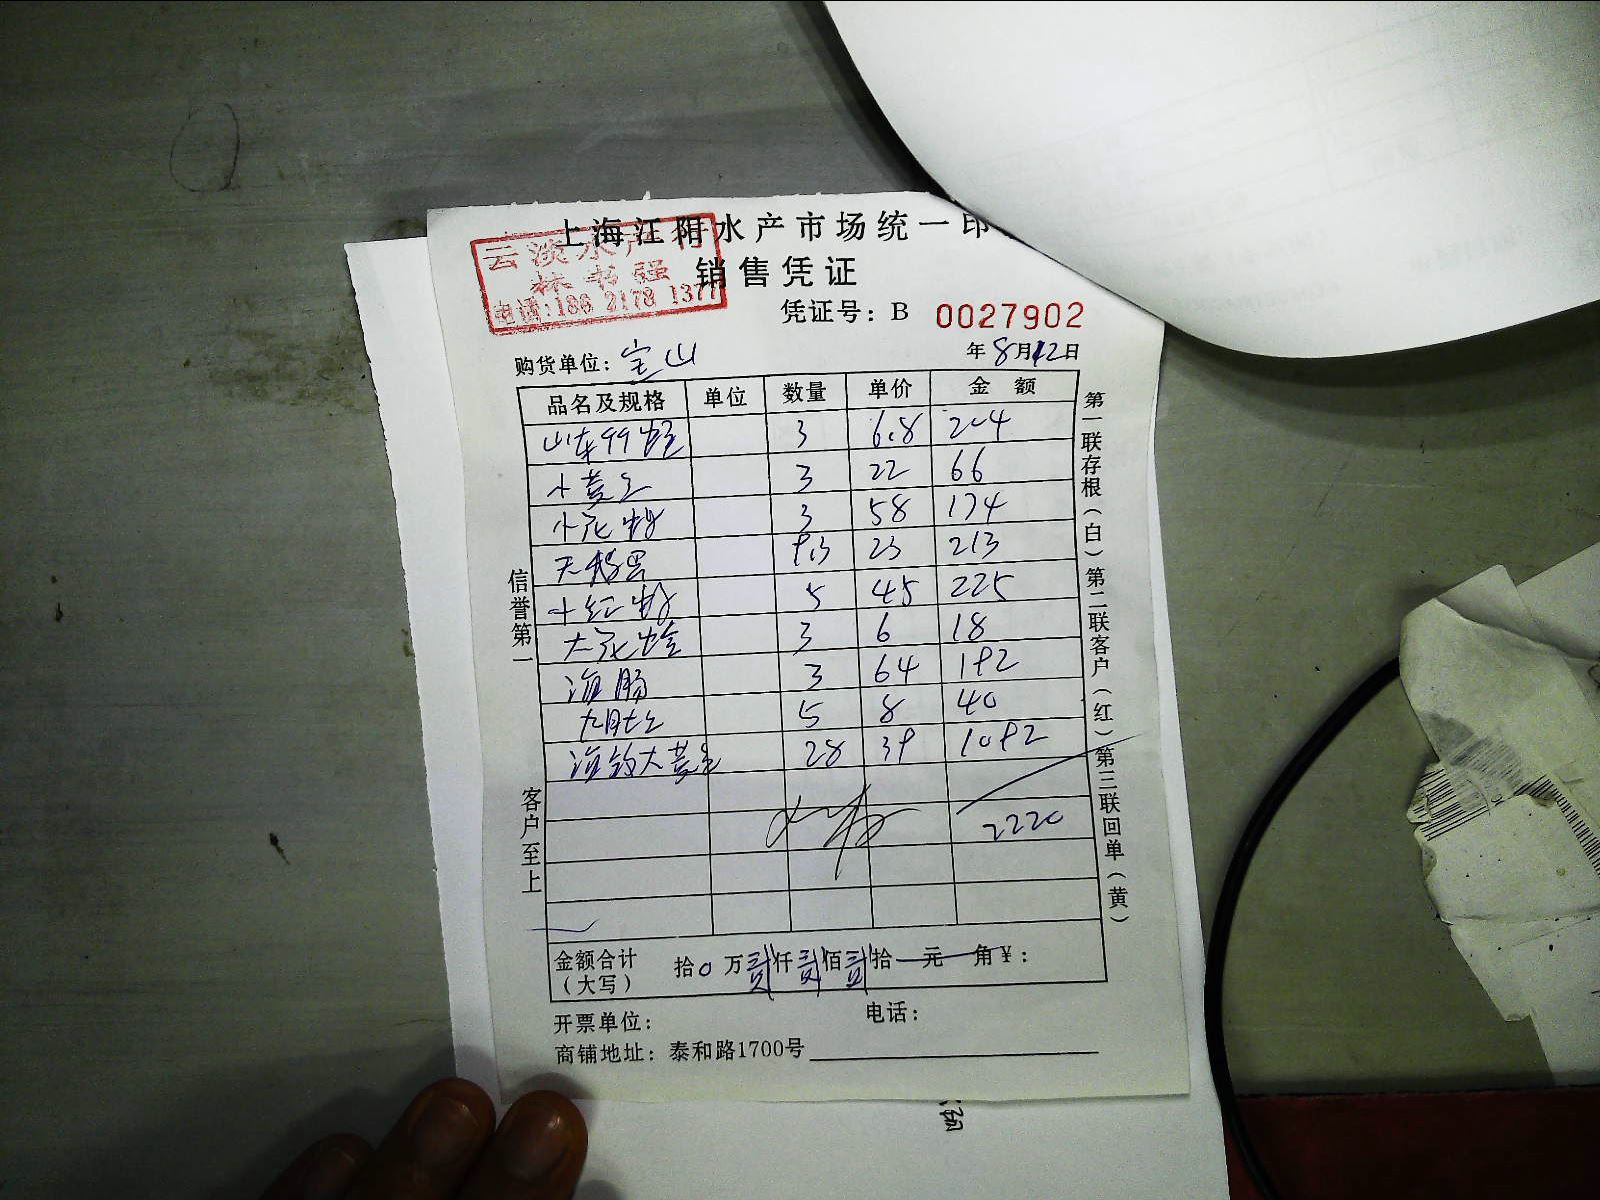 上海江阳水产市场统一印
云淡水产行
林书强
电话:186 2178 1377
销售凭证
凭证号: B 0027902
购货单位: 宝山
年8月12日
品名及规格 单位 数量 单价 金额
山东99蛏 3 6.8 204
小黄 3 22 66
小花 3 58 174
9.3 23 213
小红 5 45 225
大花蛤 3 6 18
海肠 3 64 192
5 8 40
海钓大黄 28 39 1092
2220
金额合计 拾0万贰仟贰佰贰拾 元 角¥:
(大写)
开票单位: 电话:
商铺地址: 泰和路1700号
信誉第一
客户至上
第一联存根(白)第二联客户(红)第三联回单(黄)